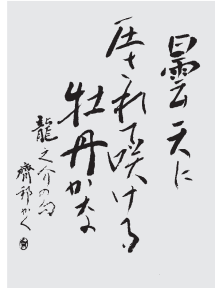 曇天に
圧されて咲ける
牡丹かな
龍之介の句
齊邨かく